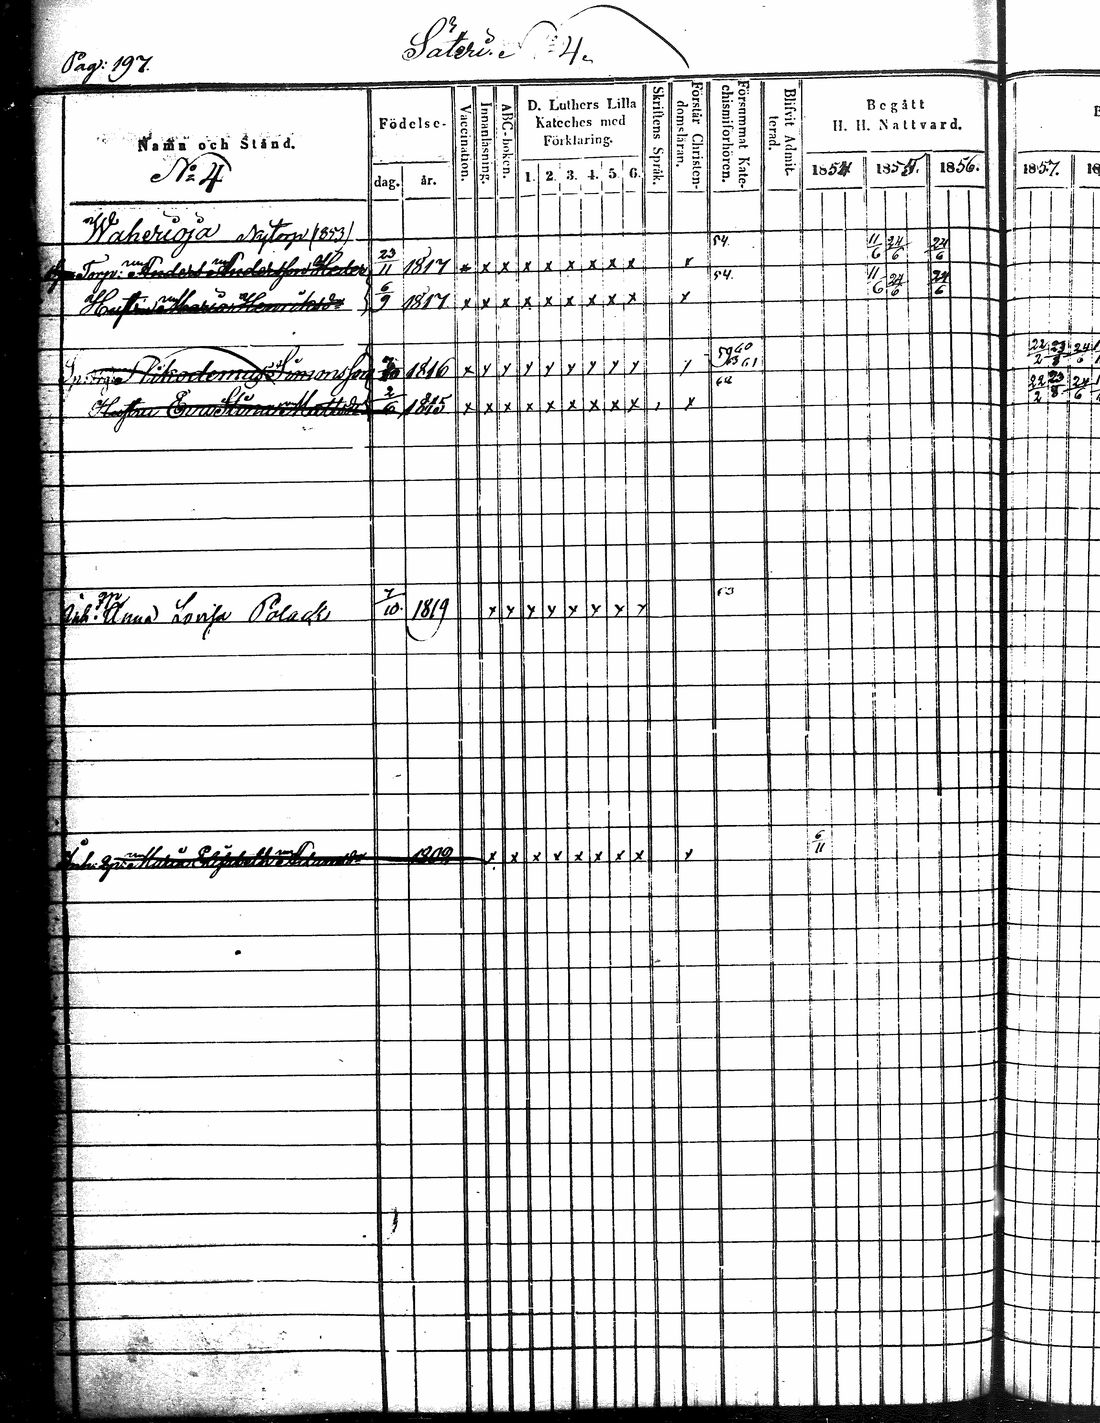 Pag: 197.
Säteri. No 4.
Namn och Stånd.
No 4
Födelse-
dag. år.
Vaccination.
Innanläsning.
ABC-boken.
D. Luthers Lilla
Kateches med
Förklaring.
1. 2. 3. 4. 5. 6.
Skriftens Språk.
Förstår Christen-
domsläran.
Försummat Kate-
chismiförhören.
Blifvit Admit-
terad.
Begått
H. H. Nattvard.
1854 1855. 1856. 1857.
Waherioja Nytorp (1853)
Torp: Anders Andersson Heder 23/11 1817 x x x x x x x x x x 54. 11/6 24/6 24/6
Hustru Maria Henriksdr 6/9 1817 x x x x x x x x x x 54. 11/6 24/6 24/6
Nikodemus Simonsson 1816 x y y y y y y y y y 59 60 63 61 22/2 23/8 24/6
Hustru Eva Stina Mattsdr 2/6 1815 x x x x x x x x x x 64 22/2 23/8 24/6
Inh. Anna Lovisa Polack 7/10. 1819 y y y y y y y y 63
Maria Elisabeth Adamsdr 1809 x x x x x x x x x 6/11